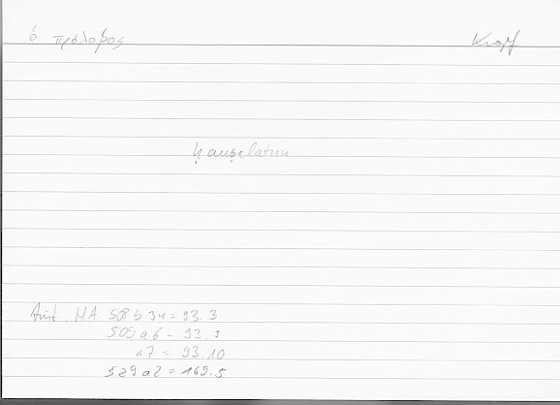 ὁ πρόλοβος Kropf
ḥauṣalatun
Arist. HA 508 b 34 = 93.3
509 a 6 = 93.9
a 7 = 93.10
529 a 2 = 169.5